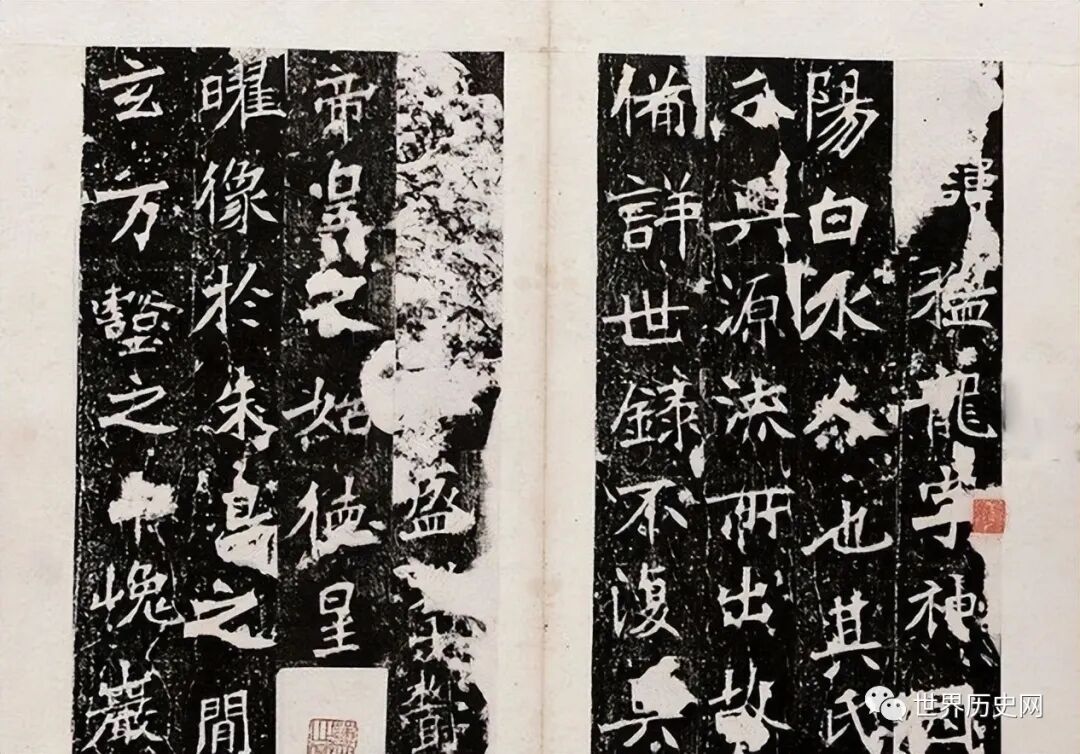 諱猛龍字神冏
陽白水人也其氏
分興源流所出故
備詳世錄不復具
盛蓄
帝皇之始德星
曜像於朱鳥之間
玄万壑之中巉巖
世界历史网